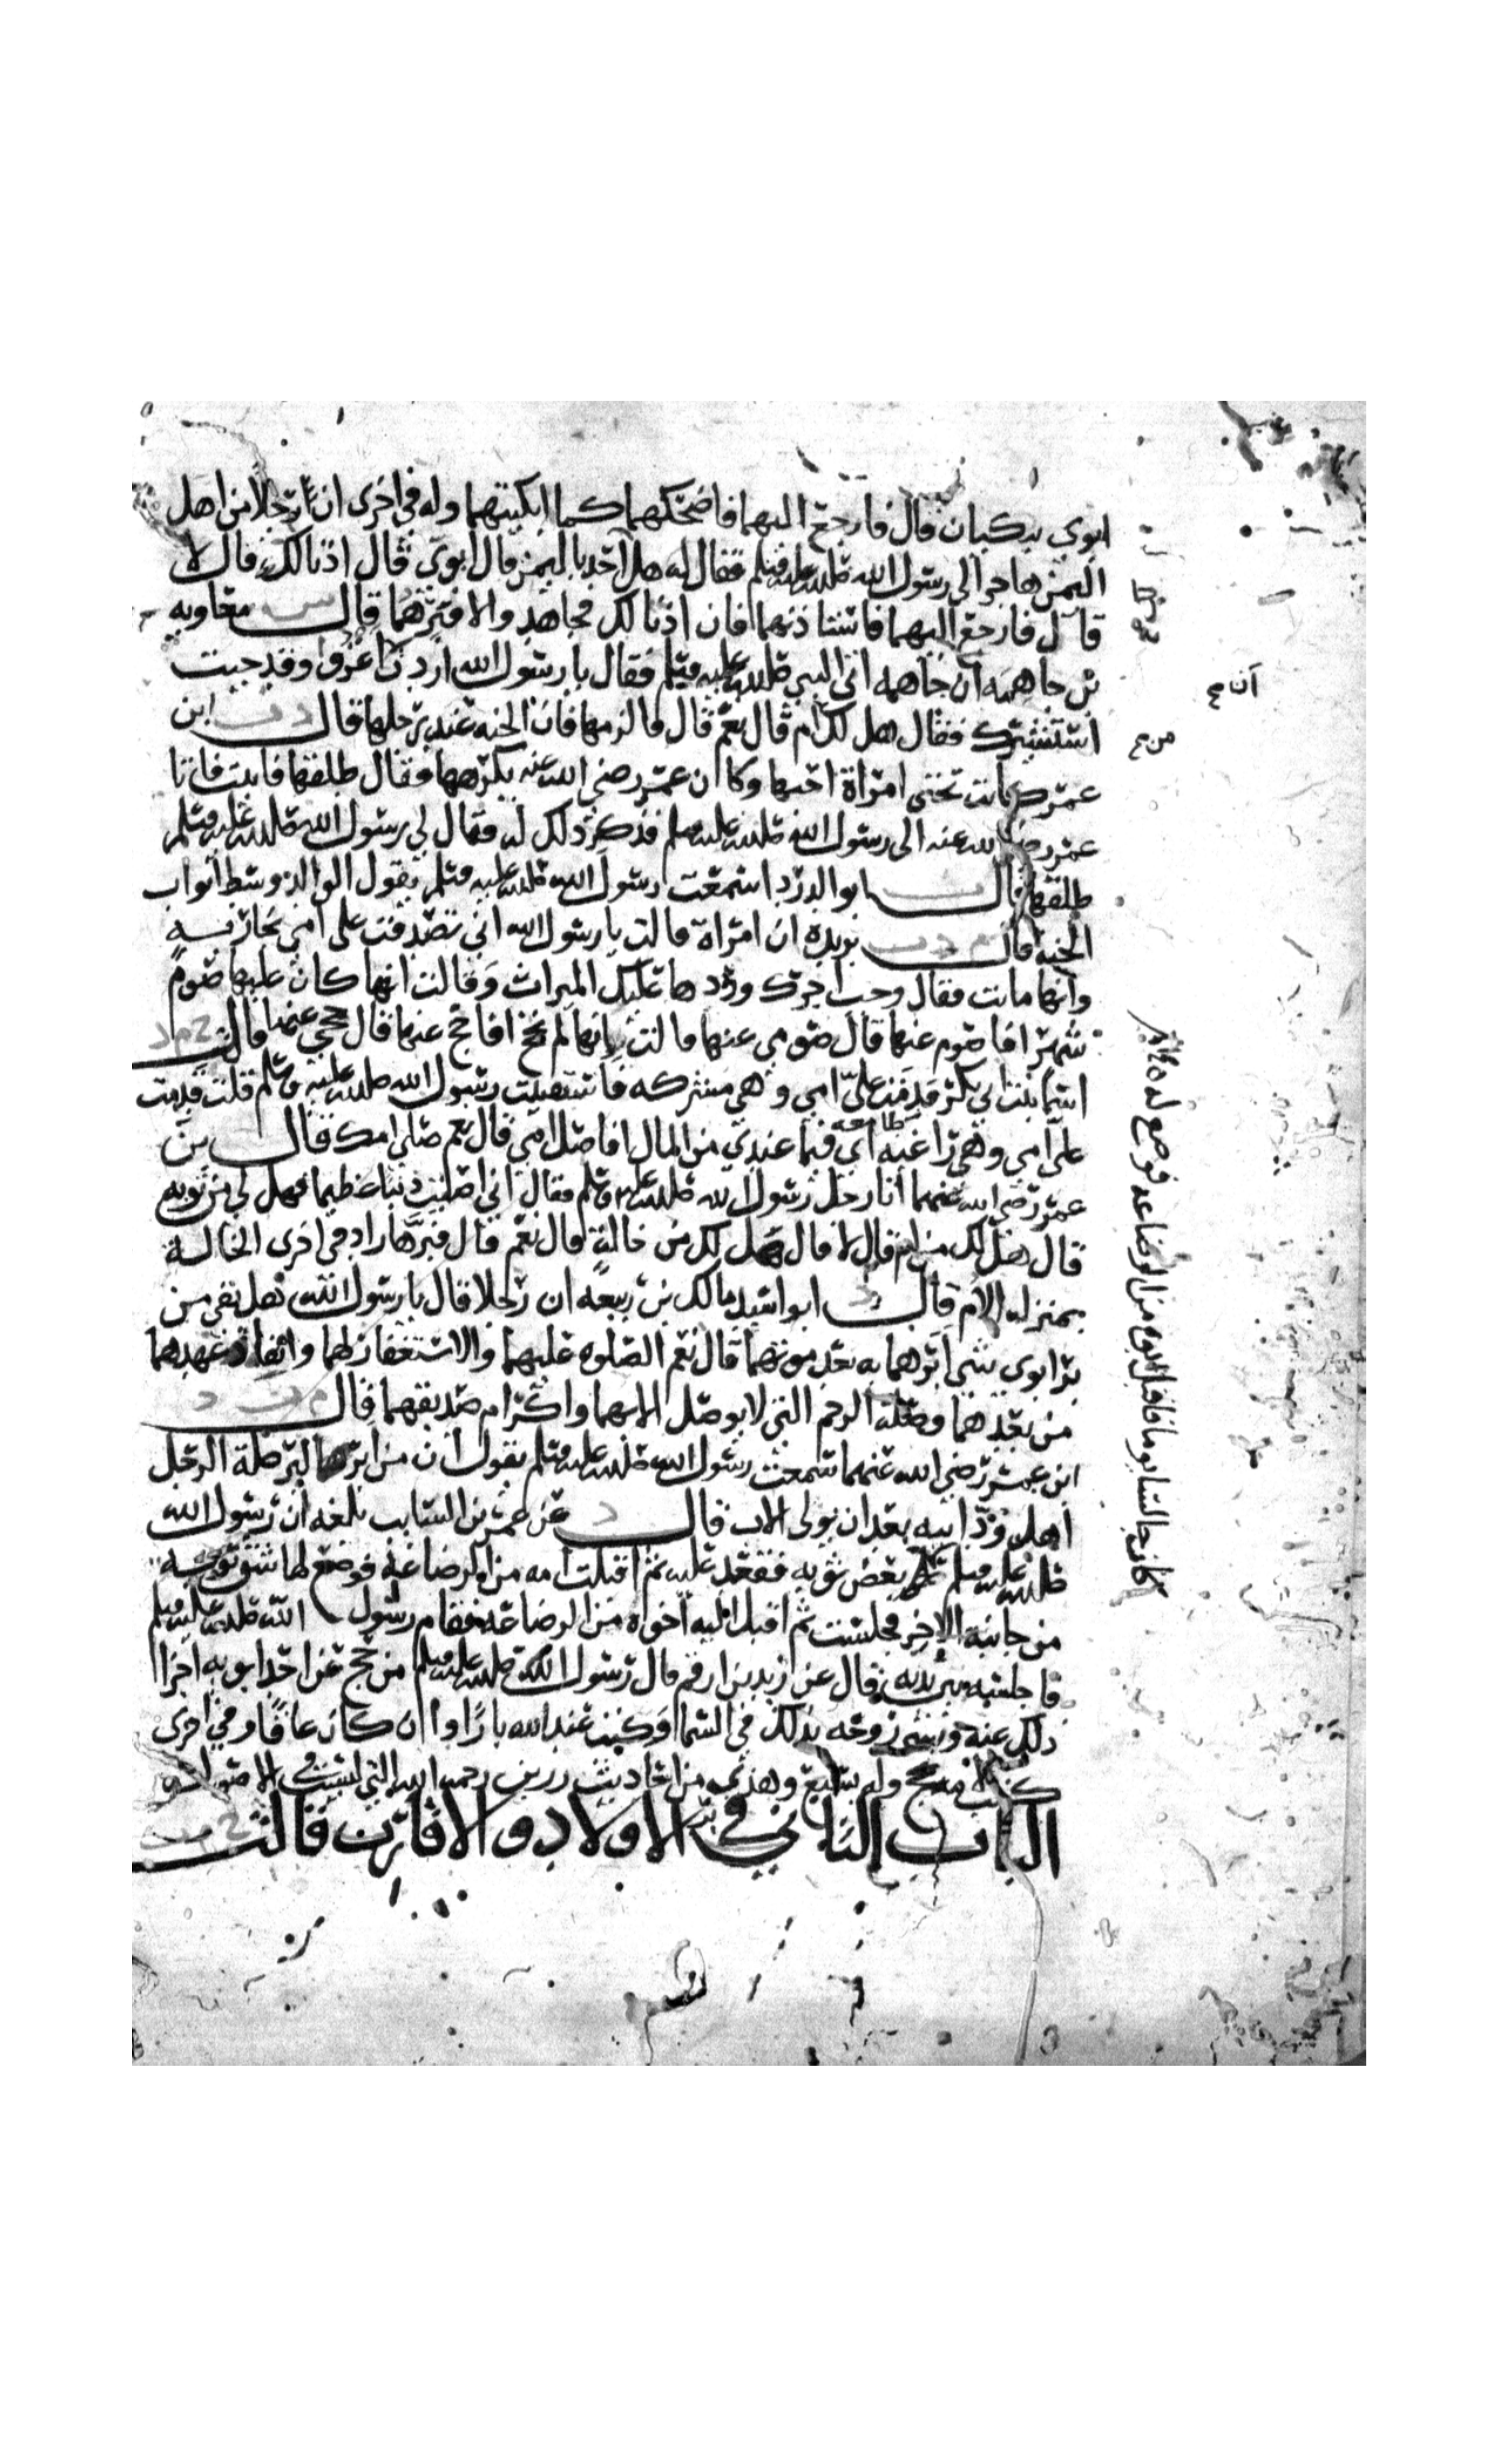 ابوي يبكيان قال فارجع اليهما فاضحكهما كما ابكيتهما وله في اخرى ان رجلا من اهل
اليمن هاجر الى رسول الله صلى الله عليه وسلم فقال له هل احد باليمن قال ابوي قال اذنا لك قال لا
قال فارجع اليهما فاستاذنهما فان اذنا لك فجاهد والا فبرهما قال س معاويه
بن جاهمه ان جاهمه اتى النبي صلى الله عليه وسلم فقال يا رسول الله اردت ان اغزو وقد جيت
استشيرك فقال هل لك ام قال نعم قال فالزمها فان الجنه عند رجلها قال د ت ابن
عمر كانت تحتي امراة احبها وكان عمر رضي الله عنه يكرهها فقال طلقها فابيت فاتا
عمر رضي الله عنه الى رسول الله صلى الله عليه وسلم فذكر ذلك له فقال لي رسول الله صلى الله عليه وسلم
طلقها قال ت ابو الدردا سمعت رسول الله صلى الله عليه وسلم يقول الوالد وسط ابواب
الجنه قال م د ت بريده ان امراة قالت يا رسول الله اني تصدقت على امي بجاريه
وانها ماتت فقال وجب اجرك وردها عليك الميراث وقالت انها كان عليها صوم
شهر افاصوم عنها قال صومي عنها قالت انها لم تحج افاحج عنها قال حجي عنها قالت خ م د
اسما بنت ابي بكر قدمت علي امي وهي مشركه فاستفتيت رسول الله صلى الله عليه وسلم قلت قدمت
علي امي وهي راغبه اي طامعه فيما عندي من المال افاصل امي قال نعم صلي امك قال ت بن
عمر رضي الله عنهما اتا رجل رسول الله صلى الله عليه وسلم فقال اني اصبت ذنبا عظيما فهل لي من توبه
قال هل لك من ام قال لا قال هل لك من خالة قال نعم قال فبرها زاد في اخرى الخالة
بمنزله الام قال د ابو اسيد مالك بن ربيعه ان رجلا قال يا رسول الله هل بقي من
بر ابوي شي ابرهما به بعد موتهما قال نعم الصلوه عليهما والاستغفار لهما وانفاذ عهدهما
من بعدهما وصلة الرحم التي لا يوصل الا بهما واكرام صديقهما قال م ت د
ابن عمر رضي الله عنهما سمعت رسول الله صلى الله عليه وسلم يقول ان من ابر البر صلة الرجل
اهل ود ابيه بعد ان يولى الاب قال د عن عمر بن السايب بلغه ان رسول الله
صلى الله عليه وسلم بعض ثوبه فقعد عليه ثم اقبلت امه من الرضاعة فوضع لها شق ثوبه
من جانبه الاخر فجلست ثم اقبل اليه اخوه من الرضاعة فقام رسول الله صلى الله عليه وسلم
فاجلسه بين يديه قال عن زيد بن ارقم قال رسول الله صلى الله عليه وسلم من حج عن احد ابويه اجزا
ذلك عنه وبشر روحه بذلك في السما وكتب عند الله بارا وان كان عاقا وفي اخرى
وهذه من احاديث رزين رحمه الله التي ليست في الاصول
الباب الثاني في بر الاولاد والاقارب قالت خ م ت
ان ح
من ح
كان جالسا يوما فاقبل ابوه من الرضاعه فوضع له